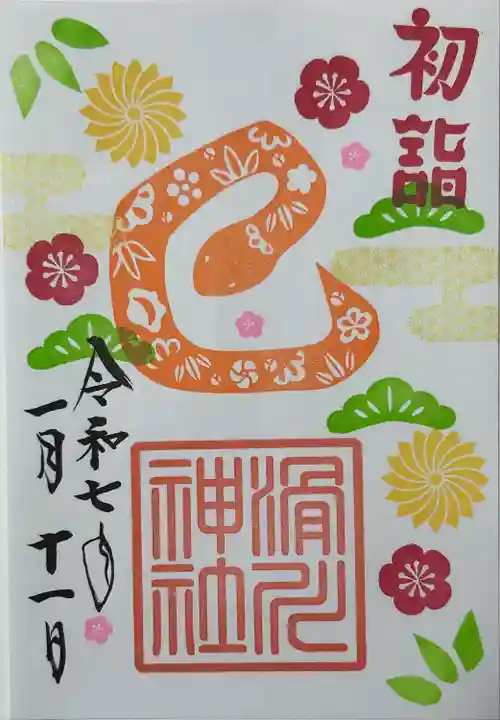 初詣
巳
滑川
神社
令和七年
一月十一日